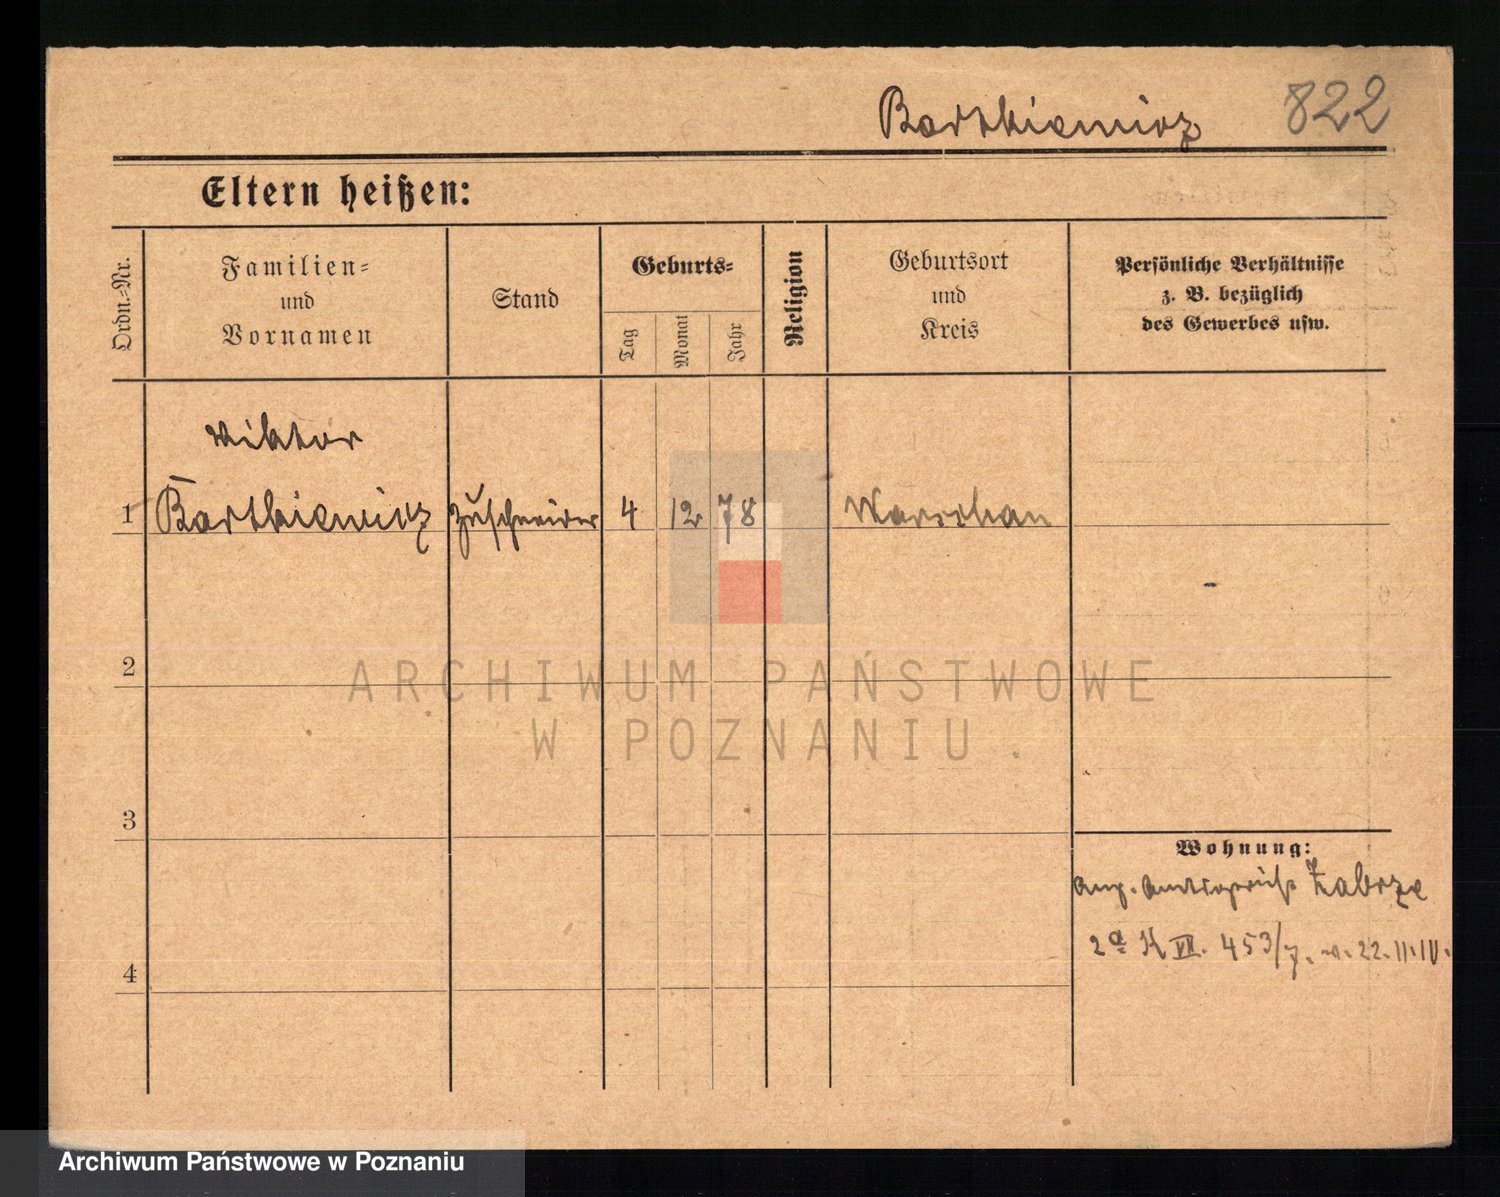 Bartkiewicz 822
Eltern heißen:
Ordn.-Nr.
Familien-
und
Vornamen
Stand
Geburts-
Tag
Monat
Jahr
Religion
Geburtsort
und
Kreis
Persönliche Verhältnisse
z. B. bezüglich
des Gewerbes usw.
Viktor
1 Bartkiewicz Zuschneider 4 12 78 Warschau
2
3
4
Wohnung:
Amtsgericht Zabrze
2a K VII. 453/7. v. 22.
ARCHIWUM PAŃSTWOWE
W POZNANIU.
Archiwum Państwowe w Poznaniu